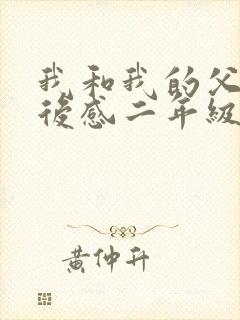 我和我的父
後感二年級
黃仲升